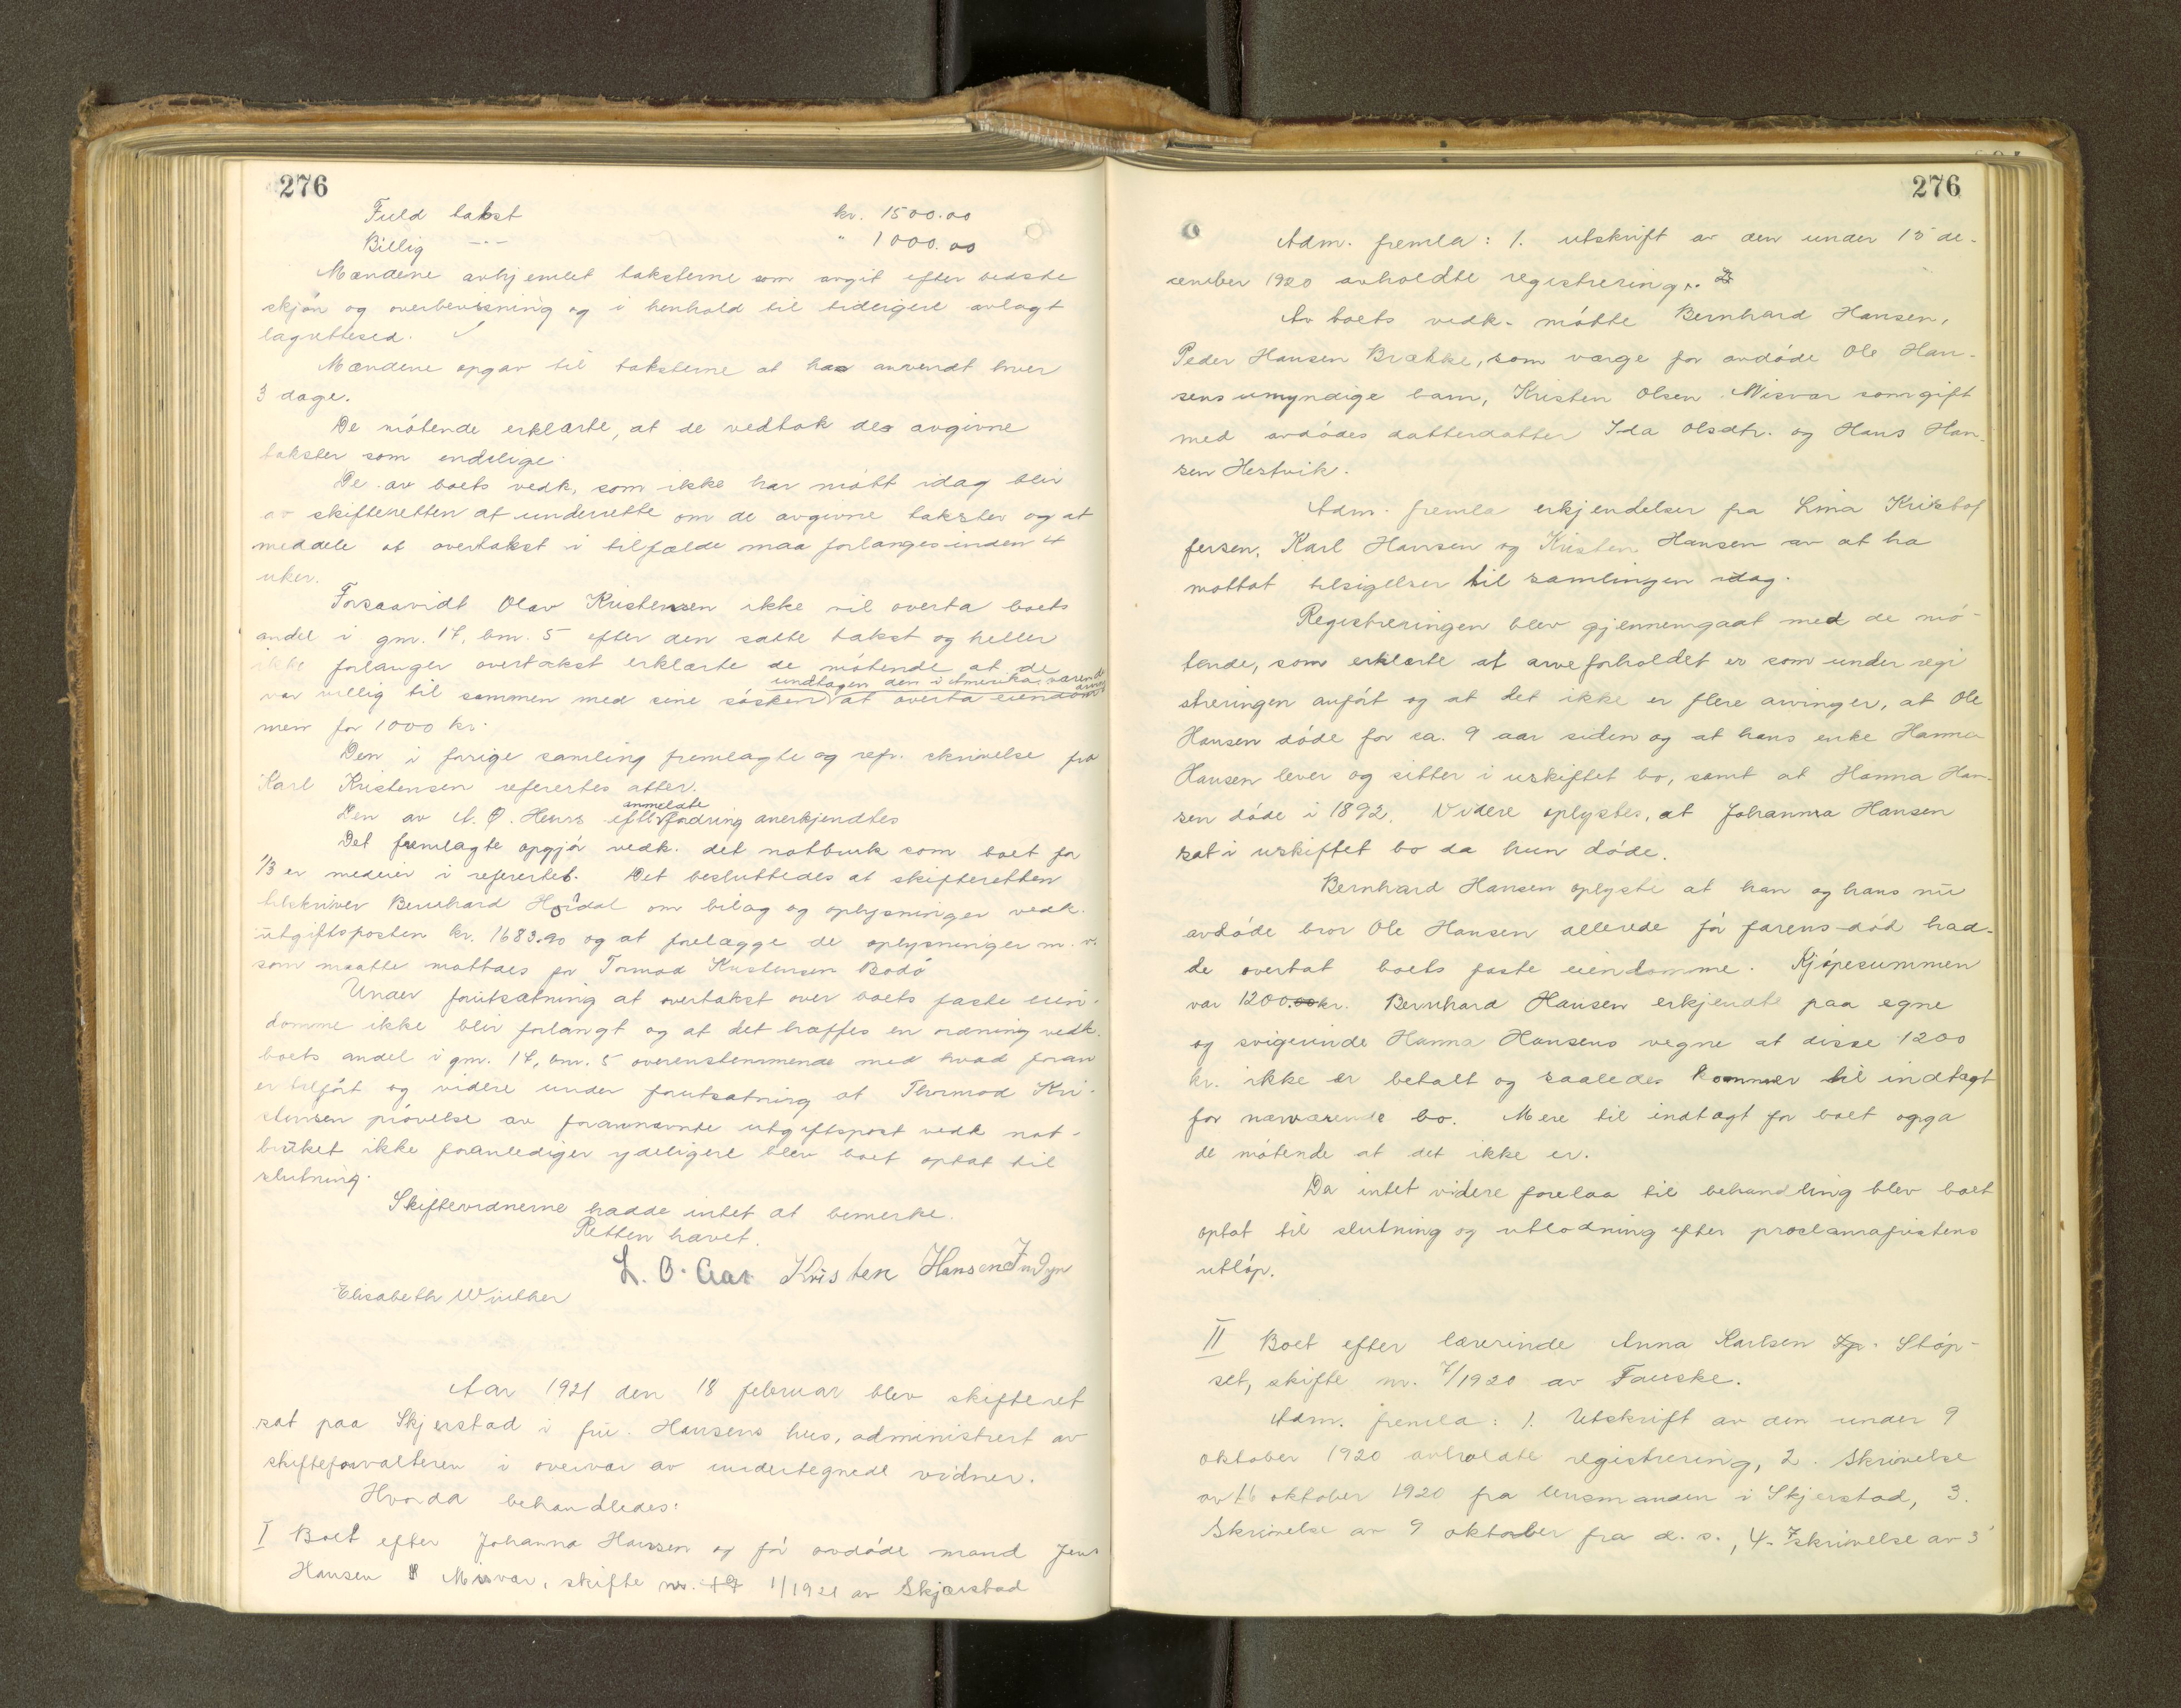 276
Fuld takst kr. 1500.00
Billig -"- " 1000.00
Mændene avhjemlet taksterne som avgit efter bedste
skjøn og overbevisning og i henhold til tidligere avlagt
lagrettesed.
Mændene opgav til taksterne at ha anvendt hver
3 dage.
De møtende erklærte, at de vedtok de avgivne
takster som endelige.
De av boets vedk. som ikke har møtt idag blir
av skifteretten at underrette om de avgivne takster og at
meddele at overtakst i tilfælde maa forlanges inden 4
uker.
Forsaavidt Olav Kristensen ikke vil overta boets
andel i gnr. 17, bnr. 5 efter den satte takst og heller
ikke forlanger overtakst erklærte de møtende at de
undtagen den i Amerika værende
var villig til sammen med sine søsken at overta eiendom-
men for 1000 kr.
Den i forige samling fremlagte og refr. skrivelse fra
Karl Kristensen refereertes atter.
anmeldte
Den av A. O. Heurs eftf. fordring anerkjendtes
Det fremlagte opgjør vedk. det notbruk som boet for
1/3 er medeier i refereertes. Det besluttedes at skifteretten
tilskriver Bernhard Hordal om bilag og oplysninger vedk.
utgiftsposten kr. 1683.90 og at forelægge de oplysninger m. v.
som maatte mottaes for Tormod Kristensen Bodø
Under forutsætning at overtakst over boets faste eien-
domme ikke blir forlangt og at det træffes en ordning vedk.
boets andel i gnr. 17, bnr. 5 overenstemmende med hvad foran
er tilført og videre under forutsætning at Thormod Kri-
stensen prøvelse av forannævnte utgiftspost vedk not-
bruket ikke foranlediger ydeligere blev boet optat til
slutning.
Skiftevidnerne hadde intet at bemerke.
Retten hævet.
L. O. Aas Kristen Hansen Indyr
Elisabeth Winther
Aar 1921 den 18 februar blev skifteret
sat paa Skjerstad i fru Hansens hus, administrert av
skifteforvalteren i overvær av undertegnede vidner.
Hvorda behandledes:
I Boet efter Johanna Hansen og før avdøde mand Jens
Hansen Misvær, skifte nr. 1/1921 av Skjærstad
276
Adm. fremla: 1. utskrift av den under 15 de-
cember 1920 avholdte registrering.
Av boets vedk. møtte Bernhard Hansen,
Peder Hansen Brække, som værge for avdøde Ole Han-
sens umyndige barn, Kristen Olsen Misvær som gift
med avdødes datterdatter Ida Olsdtr. og Hans Han-
sen Hestvik.
Adm. fremla erkjendelser fra Lina Kristof
fersen, Karl Hansen og Kristen Hansen av at ha
mottat tilsigelser til samlingen idag.
Registreringen blev gjennemgaat med de mø-
tende, som erklærte at arveforholdet er som under regi
streringen anført og at det ikke er flere arvinger, at Ole
Hansen døde for ca. 9 aar siden og at hans enke Hanna
Hansen lever og sitter i uskiftet bo, samt at Hanna Han-
sen døde i 1892. Videre oplystes, at Johanna Hansen
sat i uskiftet bo da hun døde.
Bernhard Hansen oplyste at han og hans nu
avdøde bror Ole Hansen allerede før farens død had-
de overtat boets faste eiendomme. Kjøpesummen
var 1200.00 kr. Bernhard Hansen erkjendte paa egne
og svigerinde Hanna Hansens vegne at disse 1200
kr. ikke er betalt og saaledes kommer til indtægt
for nærværende bo. Mere til indtægt for boet opga
de møtende at det ikke er.
Da intet videre forelaa til behandling blev boet
optat til slutning og utlodning efter proclamafristens
utløp.
II Boet efter lærerinde Anna Karlsen Støp-
set, skifte nr. 7/1920 av Fauske.
Adm. fremla: 1. Utskrift av den under 9
oktober 1920 avholdte registrering, 2. Skrivelse
av 16 oktober 1920 fra lensmanden i Skjerstad, 3.
Skrivelse av 9 oktober fra d. s., 4. skrivelse av 3